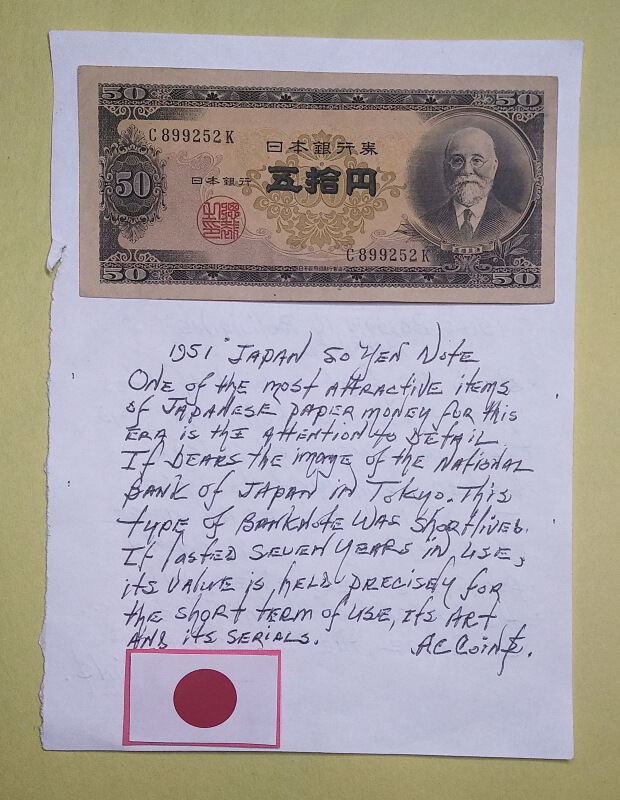 50 50
C 899252 K
日本銀行券
50 日本銀行 五拾円
C 899252 K
高橋是清
50 50
1951 JAPAN 50 YEN NOTE
ONE of the most attractive items
of JAPANESE paper money for this
ERA is the Attention to Detail
It bears the image of the NATIONAL
BANK of JAPAN in Tokyo. This
type of Banknote was shortlived.
It lasted SEVEN YEARS in use,
its VALUE is held PRECISELY for
the short term of use, its ART
AND its SERIALS. AC Coin$.